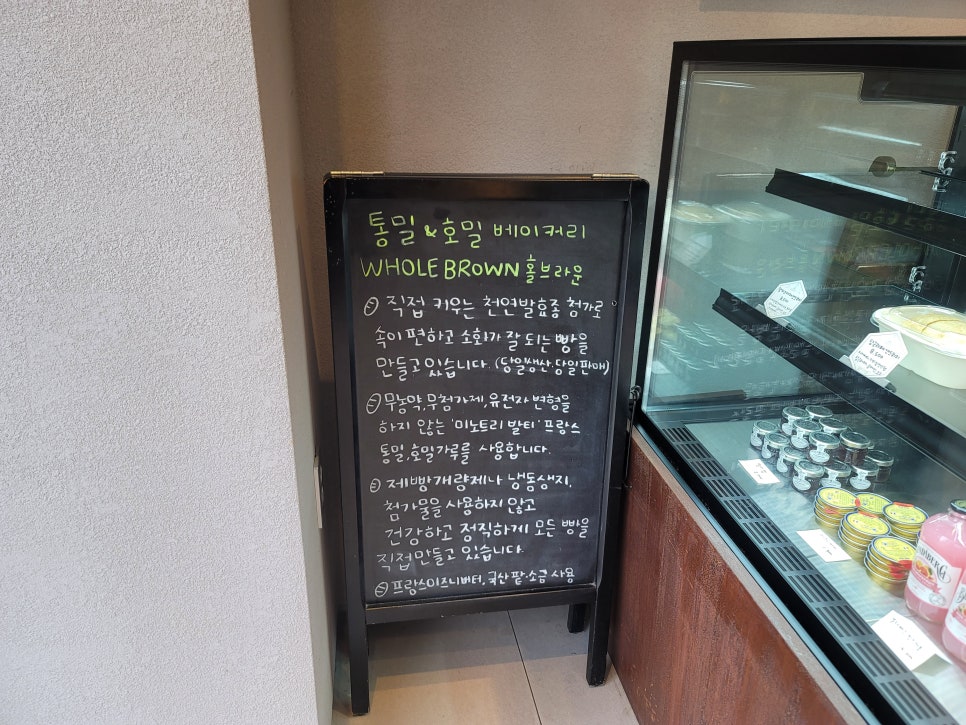 통밀 & 호밀 베이커리
WHOLE BROWN 홀브라운
직접 키우는 천연발효종 첨가로
속이 편하고 소화가 잘 되는 빵을
만들고 있습니다. (당일생산 당일판매)
무농약, 무첨가제, 유전자 변형을
하지 않는 '미노트리 발티' 프랑스
통밀, 호밀가루를 사용합니다.
제빵개량제나 냉동생지,
첨가물을 사용하지 않고
건강하고 정직하게 모든 빵을
직접만들고 있습니다.
프랑스이즈니버터, 국산 팥·소금 사용